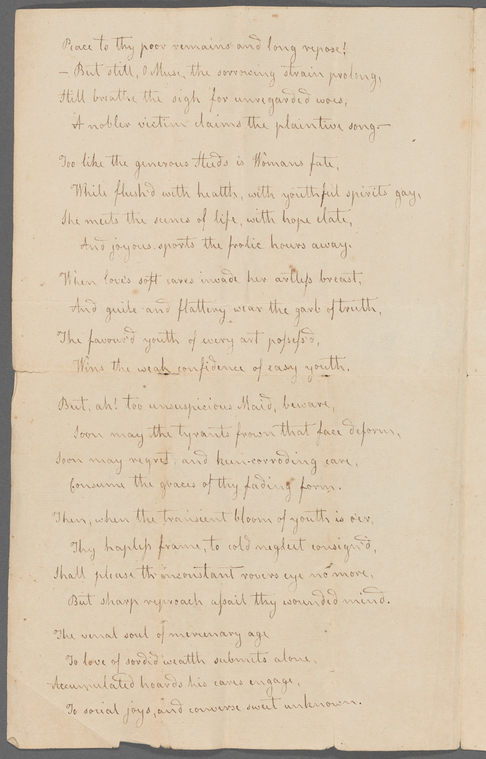 Peace to thy poor remains and long repose!
– But still, O Muse, the sorrowing strain prolong,
Still breathe the sigh for unregarded woes,
A nobler victim claims the plaintive song –
Too like the generous Steeds is Womans fate,
While flush'd with health, with youthful spirits gay,
She meets the scenes of life, with hope elate,
And joyous sports the frolic hours away.
When love's soft cares invade her artless breast,
And guile and flattery wear the garb of truth,
The favour'd youth of every art possess'd,
Wins the weak confidence of easy youth.
But, ah! too unsuspicious Maid, beware,
Soon may the tyrants frown that face deform,
Soon may regret, and keen-corroding care,
Consume the graces of thy fading form.
Then, when the transient bloom of youth is o'er,
Thy hapless frame, to cold neglect consign'd,
Shall please th' inconstant rovers eye no more,
But sharp reproach assail thy wounded mind.
The venal soul of mercenary age
To love of sordid wealth submits alone,
Accumulated hoards his cares engage,
To social joys, and converse sweet unknown.